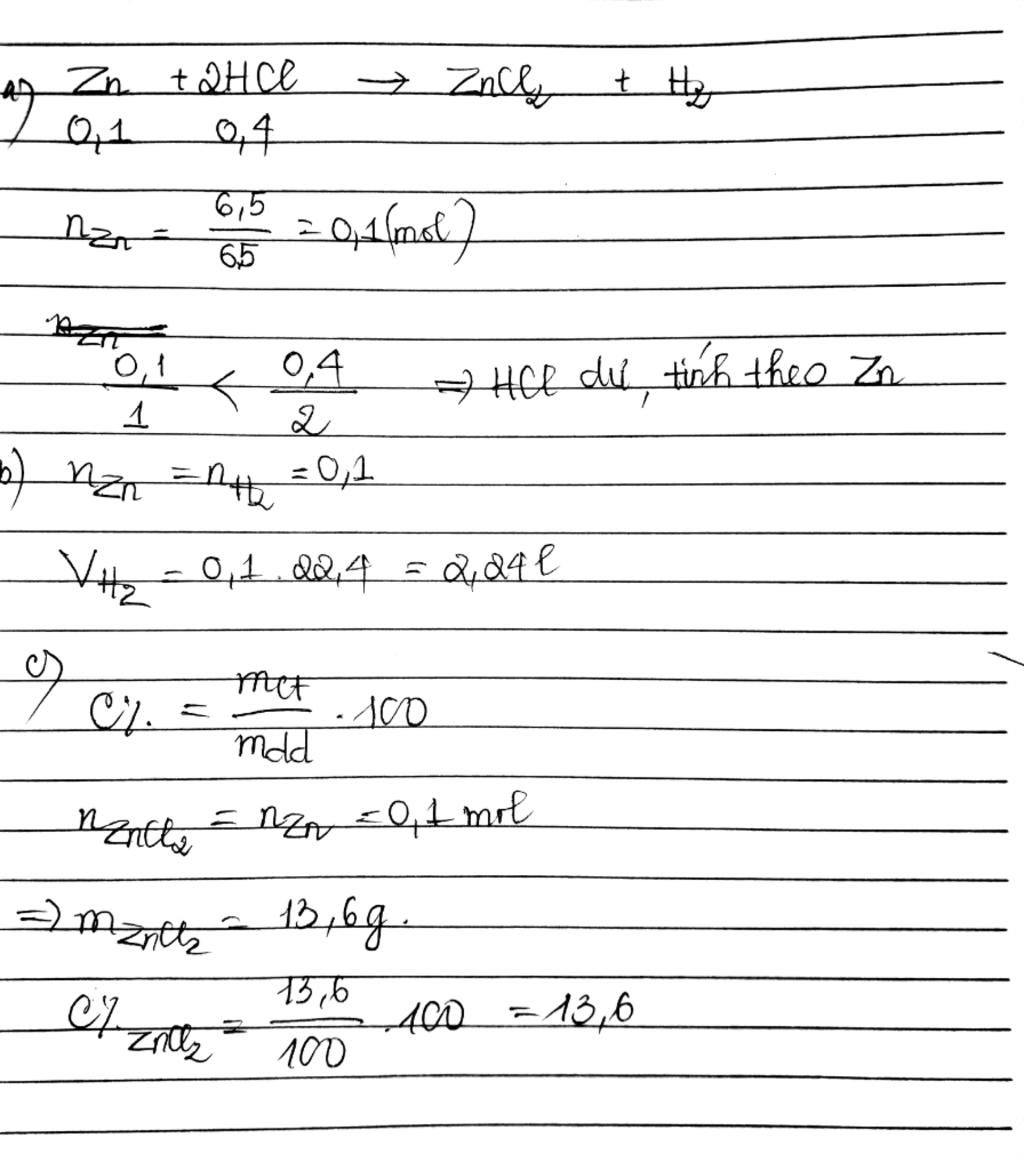 a) Zn + 2HCl → ZnCl₂ + H₂
0,1 0,4
n Zn = 6,5/65 = 0,1 (mol)
n Zn
0,1/1 < 0,4/2 ⇒ HCl dư, tính theo Zn
b) n Zn = n H₂ = 0,1
V H₂ = 0,1 . 22,4 = 2,24 l
c) C% = mct/mdd . 100
n ZnCl₂ = n Zn = 0,1 mol
⇒ m ZnCl₂ = 13,6g.
C% ZnCl₂ = 13,6/100 . 100 = 13,6